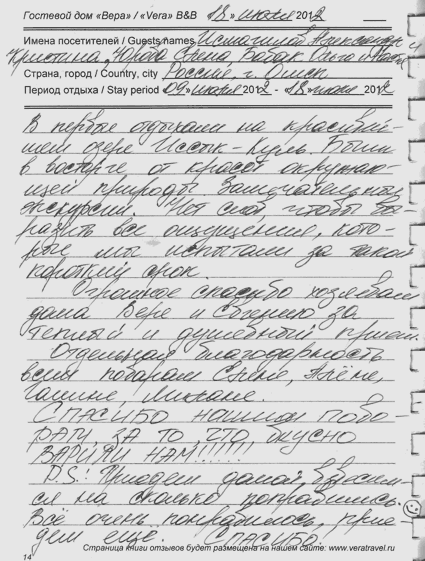 Гостевой дом «Вера» / «Vera» B&B «18» июля 2012
Имена посетителей / Guests names Исмагилов Александр и
Кристина, Юрова Елена, Бабак Ольга и
Страна, город / Country, city Россия, г. Омск
Период отдыха / Stay period «09» июля 2012 - «18» июля 2012
В первые отдыхали на красивей-
шем озере Иссык-Куль. Были
в восторге от красот окружаю-
щей природы. Замечательные
экскурсии. Нет слов, чтобы вы-
разить все ощущения, кото-
рые мы испытали за такой
короткий срок.
Огромное спасибо хозяевам
дома Вере и Евгению за
теплый и душевный прием.
Отдельная благодарность
всем поварам Свете, Алёне,
Галине, Милане.
СПАСИБО нашим пова-
рам, за то, что, вкусно
варили нам!!!!!!
P.S.: Приедем домой, взвесим-
ся на сколько поправились.
Всё очень понравилось, прие-
дем ещё. СПАСИБО.
Страница книги отзывов будет размещена на нашем сайте: www.veratravel.ru
14